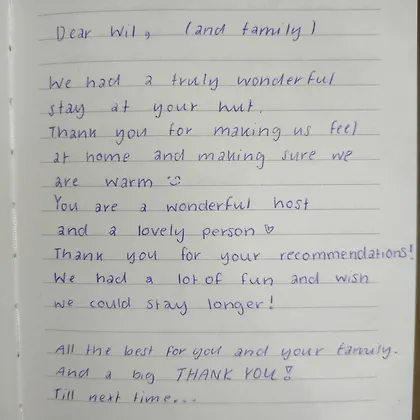 Dear Wil, (and family)
We had a truly wonderful
stay at your hut.
Thank you for making us feel
at home and making sure we
are warm ☺
You are a wonderful host
and a lovely person ♡
Thank you for your recommendations!
We had a lot of fun and wish
we could stay longer!
All the best for you and your family.
And a big THANK YOU!
Till next time...